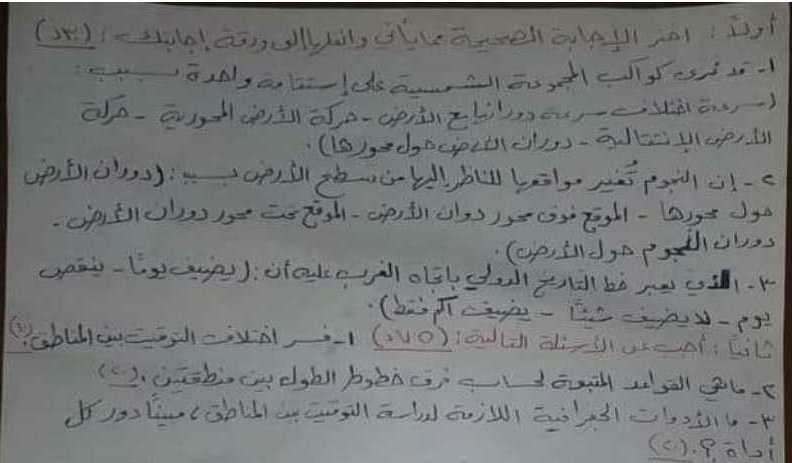 أولاً : اختر الإجابة الصحيحة مما يأتي وانقلها إلى ورقة إجابتك : (٣د)
١- قد نرى كواكب المجموعة الشمسية على إستقامة واحدة بسبب :
(سرعة اختلاف سرعة دورانها مع الأرض - حركة الأرض المحورية - حركة
الأرض الانتقالية - دوران الأرض حول محورها).
٢- إن النجوم تُغير مواقعها للناظر إليها من سطح الأرض بسبب : (دوران الأرض
حول محورها - الموقع فوق محور دوان الأرض - الموقع تحت محور دوران الأرض -
دوران النجوم حول الأرض).
٣- الذي يعبر خط التاريخ الدولي باتجاه الغرب عليه أن : (يضيف يوماً - ينقص
يوم - لا يضيف شيئاً - يضيف فقط).
ثانياً : أجب عن الأسئلة التالية : ١- فسر اختلاف التوقيت بين المناطق.
٢- ماهي القواعد المتبعة لحساب فرق خطوط الطول بين منطقتين. (٢)
٣- ما الأدوات الجغرافية اللازمة لدراسة التوقيت بين المناطق ، مبيناً دور كل
أداة ؟. (٢)